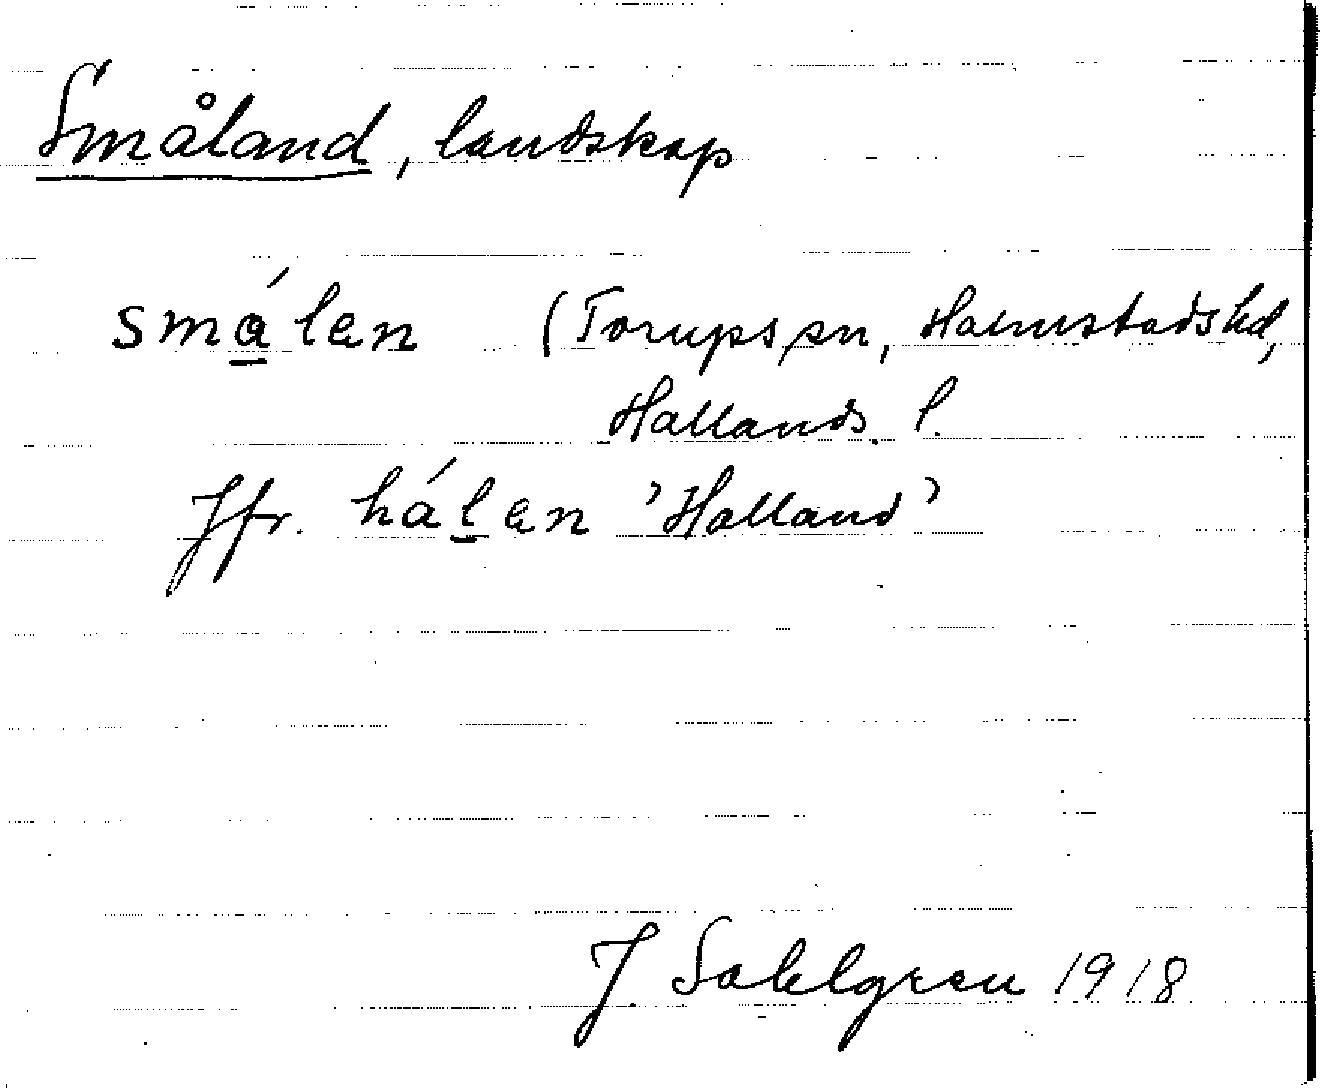 Småland, landskap
smálen (Torups sn, Halmstads hd,
Hallands l.
Jfr. hálen 'Halland'
J. Sahlgren 1918